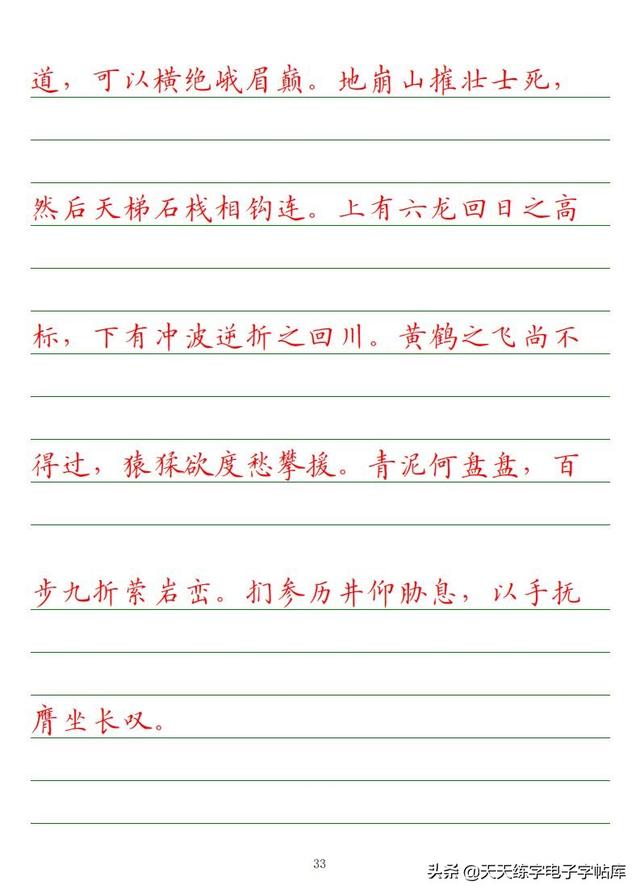 道，可以横绝峨眉巅。地崩山摧壮士死，
然后天梯石栈相钩连。上有六龙回日之高
标，下有冲波逆折之回川。黄鹤之飞尚不
得过，猿猱欲度愁攀援。青泥何盘盘，百
步九折萦岩峦。扪参历井仰胁息，以手抚
膺坐长叹。
33
头条 @天天练字电子字帖库